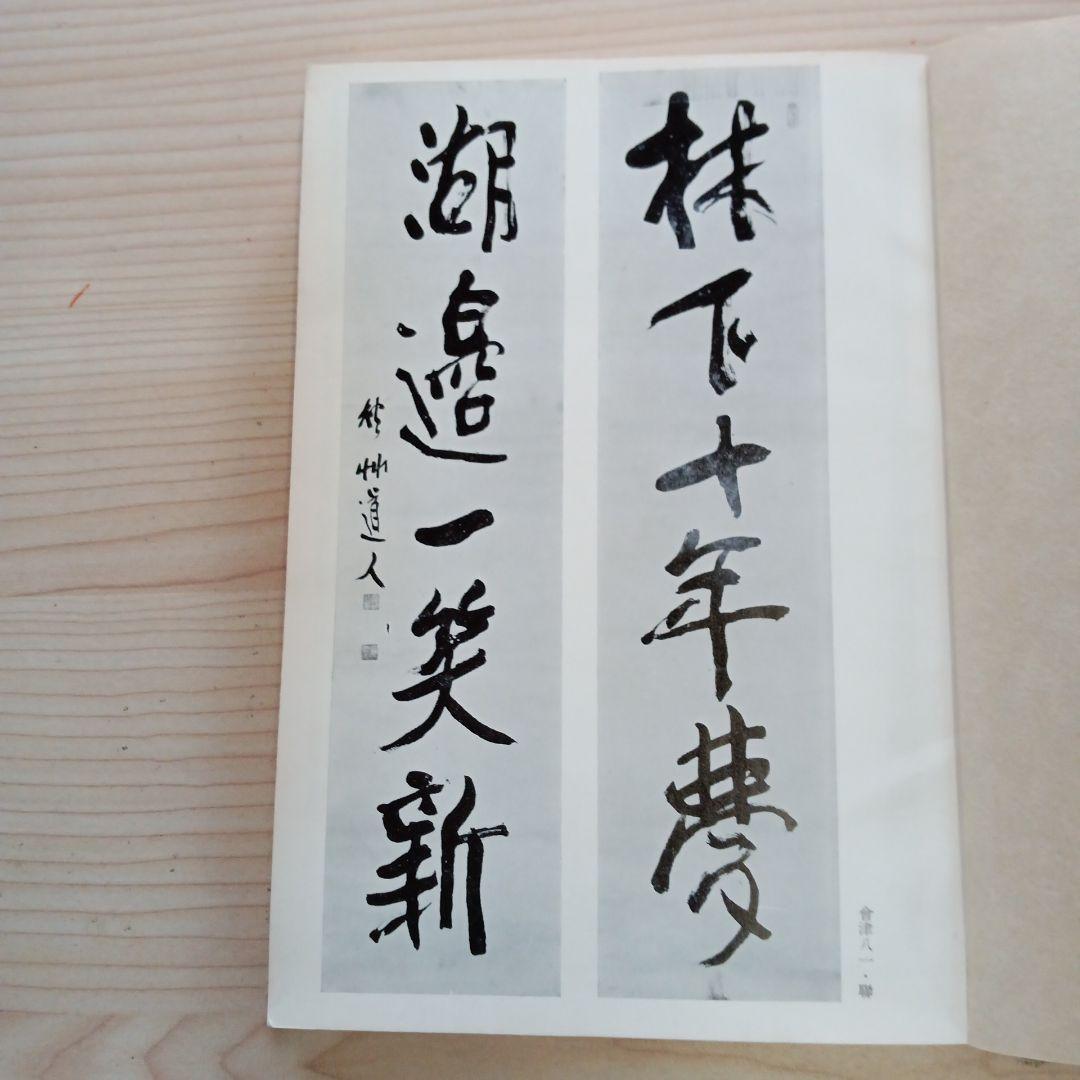 林下十年夢
湖邊一笑新
秋艸道人
會津八一・聯